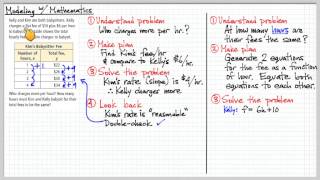 Modeling w/ Mathematics
Kelly and Kim are both babysitters. Kelly
charges a flat fee of $10 plus $6 per hour
to babysit. The table shows the total
hourly fee Kim charges to babysit.
Kim's Babysitter Fee
Number of hours, n
Total fee, f
Who charges more per hour? How many
hours must Kim and Kelly babysit for their
total fees to be the same?
① Understand problem
Who charges more per hr.?
② Make plan
Find Kim's fee/hr
& compare to Kelly's $6/hr.
③ Solve the problem
Kim's rate (slope) is $4/hr.
∴ Kelly charges more
④ Look back
Kim's rate is "reasonable"
Double-check ✓
① Understand problem
At how many hours are
their fees the same?
② Make plan
Generate 2 equations
for the fee as a function
of hours. Equate both
equations to each other.
③ Solve the problem
Kelly: f = 6h + 10